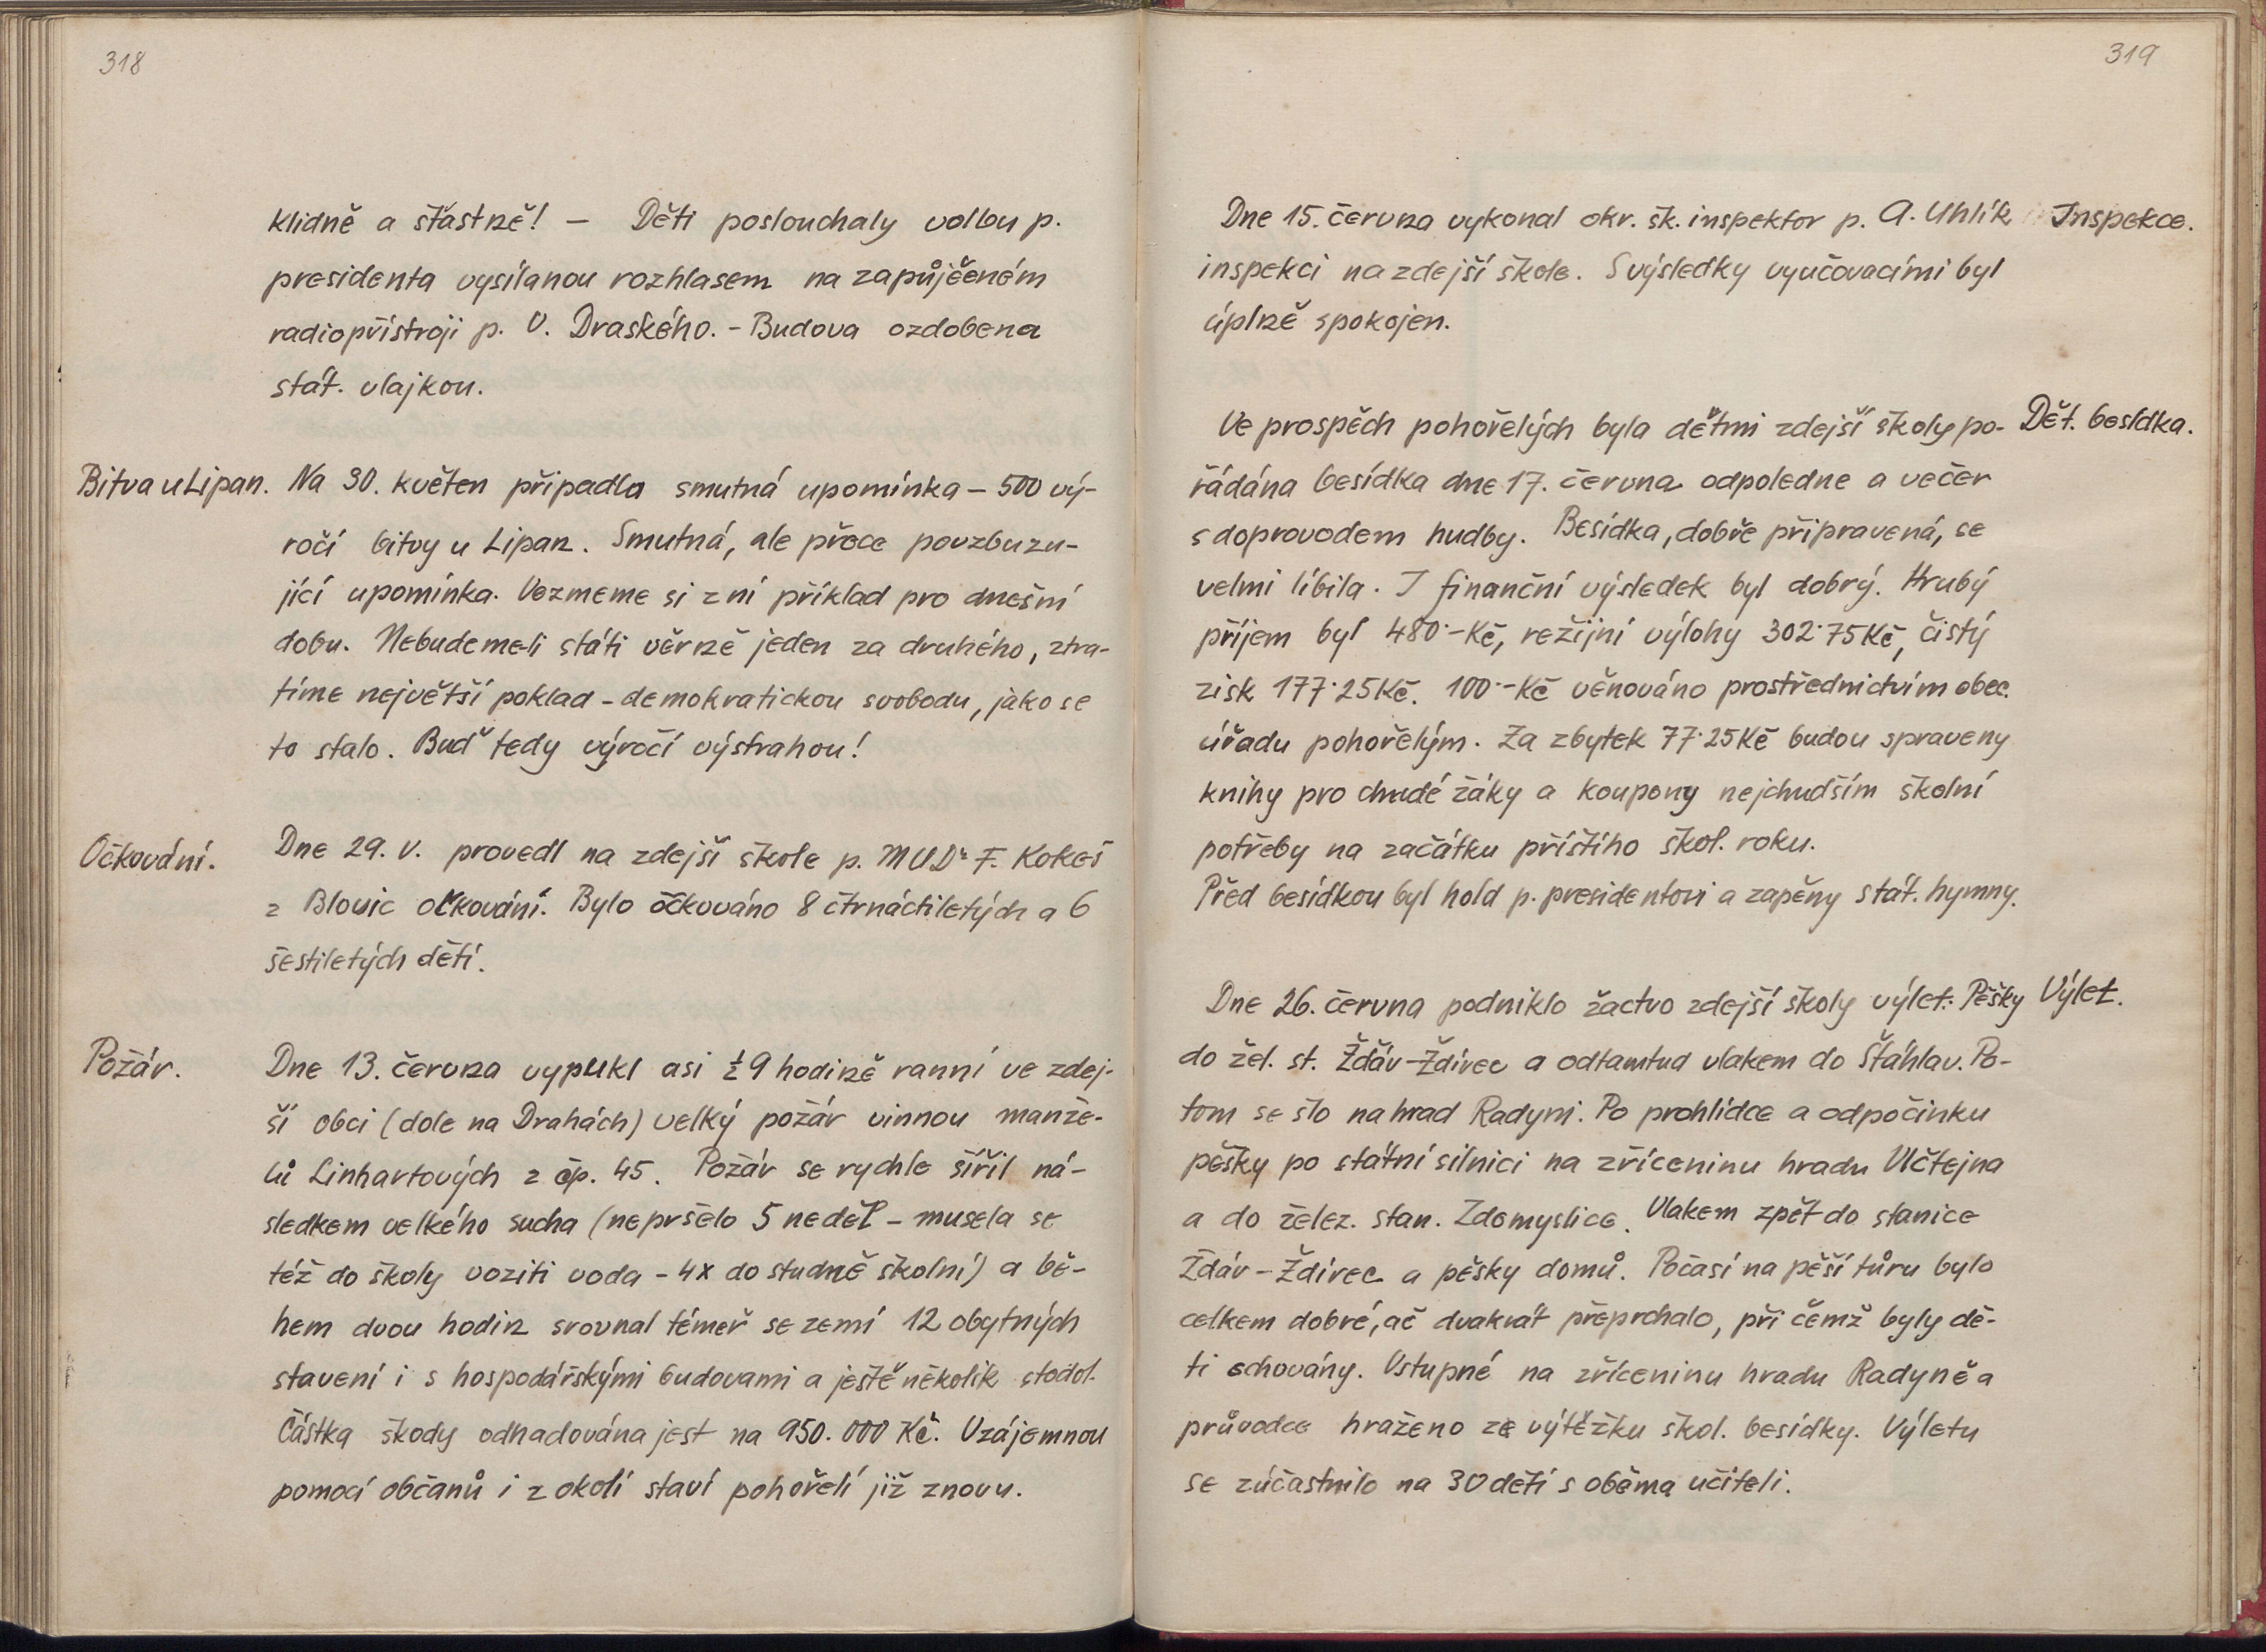 318
klidně a šťastně! — Děti poslouchaly volbu p.
presidenta vysílanou rozhlasem na zapůjčeném
radiopřístroji p. V. Draského. - Budova ozdobena
stát. vlajkou.
Bitva u Lipan. Na 30. květen připadla smutná upomínka – 500 vý-
ročí bitvy u Lipan. Smutná, ale přece povzbuzu-
jící upomínka. Vezmeme si z ní příklad pro dnešní
dobu. Nebudeme-li státi věrně jeden za druhého, ztra-
tíme největší poklad - demokratickou svobodu, jako se
to stalo. Buď tedy výročí výstrahou!
Očkování. Dne 29. V. provedl na zdejší škole p. MUDr F. Kokeš
z Blovic očkování. Bylo očkováno 8 čtrnáctiletých a 6
šestiletých dětí.
Požár. Dne 13. června vypukl asi ½ 9 hodině ranní ve zdej-
ší obci (dole na Drahách) velký požár vinnou manže-
lů Linhartových z čp. 45. Požár se rychle šířil ná-
sledkem velkého sucha (nepršelo 5 neděl – musela se
též do školy voziti voda – 4x do studně školní) a bě-
hem dvou hodin srovnal téměř se zemí 12 obytných
stavení i s hospodářskými budovami a ještě několik stodol.
Částka škody odhadována jest na 950.000 Kč. Vzájemnou
pomocí občanů i z okolí staví pohořelí již znovu.
319
Dne 15. června vykonal okr. šk. inspektor p. A. Uhlík Inspekce.
inspekci na zdejší škole. S výsledky vyučovacími byl
úplně spokojen.
Ve prospěch pohořelých byla dětmi zdejší školy po- Dět. besídka.
řádána besídka dne 17. června odpoledne a večer
s doprovodem hudby. Besídka, dobře připravená, se
velmi líbila. I finanční výsledek byl dobrý. Hrubý
příjem byl 480·–Kč, režijní výlohy 302·75Kč, čistý
zisk 177·25Kč. 100·–Kč věnováno prostřednictvím obec.
úřadu pohořelým. Za zbytek 77·25Kč budou spraveny
knihy pro chudé žáky a koupony nejchudším školní
potřeby na začátku příštího škol. roku.
Před besídkou byl hold p. presidentovi a zapěny stát. hymny.
Dne 26. června podniklo žactvo zdejší školy výlet: Pěšky Výlet.
do žel. st. Žďár-Ždírec a odtamtud vlakem do Štáhlav. Po-
tom se šlo na hrad Radyni. Po prohlídce a odpočinku
pěšky po státní silnici na zříceninu hradu Vlčtejna
a do želez. stan. Zdemyslice. Vlakem zpět do stanice
Ždár – Ždírec a pěšky domů. Počasí na pěší túru bylo
celkem dobré, ač dvakrát přeprchalo, při čemž byly dě-
ti schovány. Vstupné na zříceninu hradu Radyně a
průvodce hraženo ze výtěžku škol. besídky. Výletu
se zúčastnilo na 30 dětí s oběma učiteli.